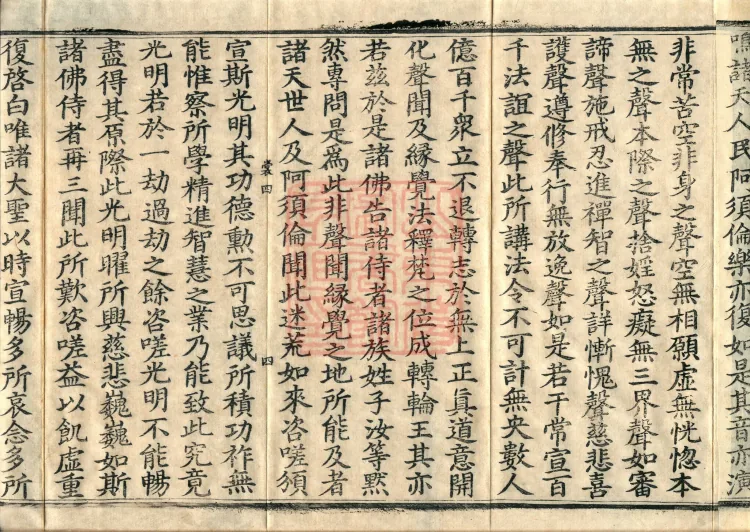 鳴諸天人民阿須倫樂亦復如是其音亦演
非常苦空非身之聲空無相願虛無恍惚本
無之聲本際之聲捨婬怒癡無三界聲如審
諦聲施戒忍進禪智之聲詳慚愧聲慈悲喜
護聲遵修奉行無放逸聲如是若干常宣百
千法誼之聲此所講法令不可計無央數人
億百千衆立不退轉志於無上正真道意開
化聲聞及緣覺法釋梵之位成轉輪王其亦
若玆於是諸佛告諸侍者諸族姓子汝等默
然專問是爲此非聲聞緣覺之地所能及者
諸天世人及阿須倫聞此迷荒如來咨嗟頒
裳四 四
宣斯光明其功德勳不可思議所積功祚無
能惟察所學精進智慧之業乃能致此究竟
光明若於一劫過劫之餘咨嗟光明不能暢
盡得其原際此光明曜所興慈悲巍巍如斯
諸佛侍者再三聞此所歎咨嗟益以飢虛重
復啓白唯諸大聖以時宣暢多所哀念多所